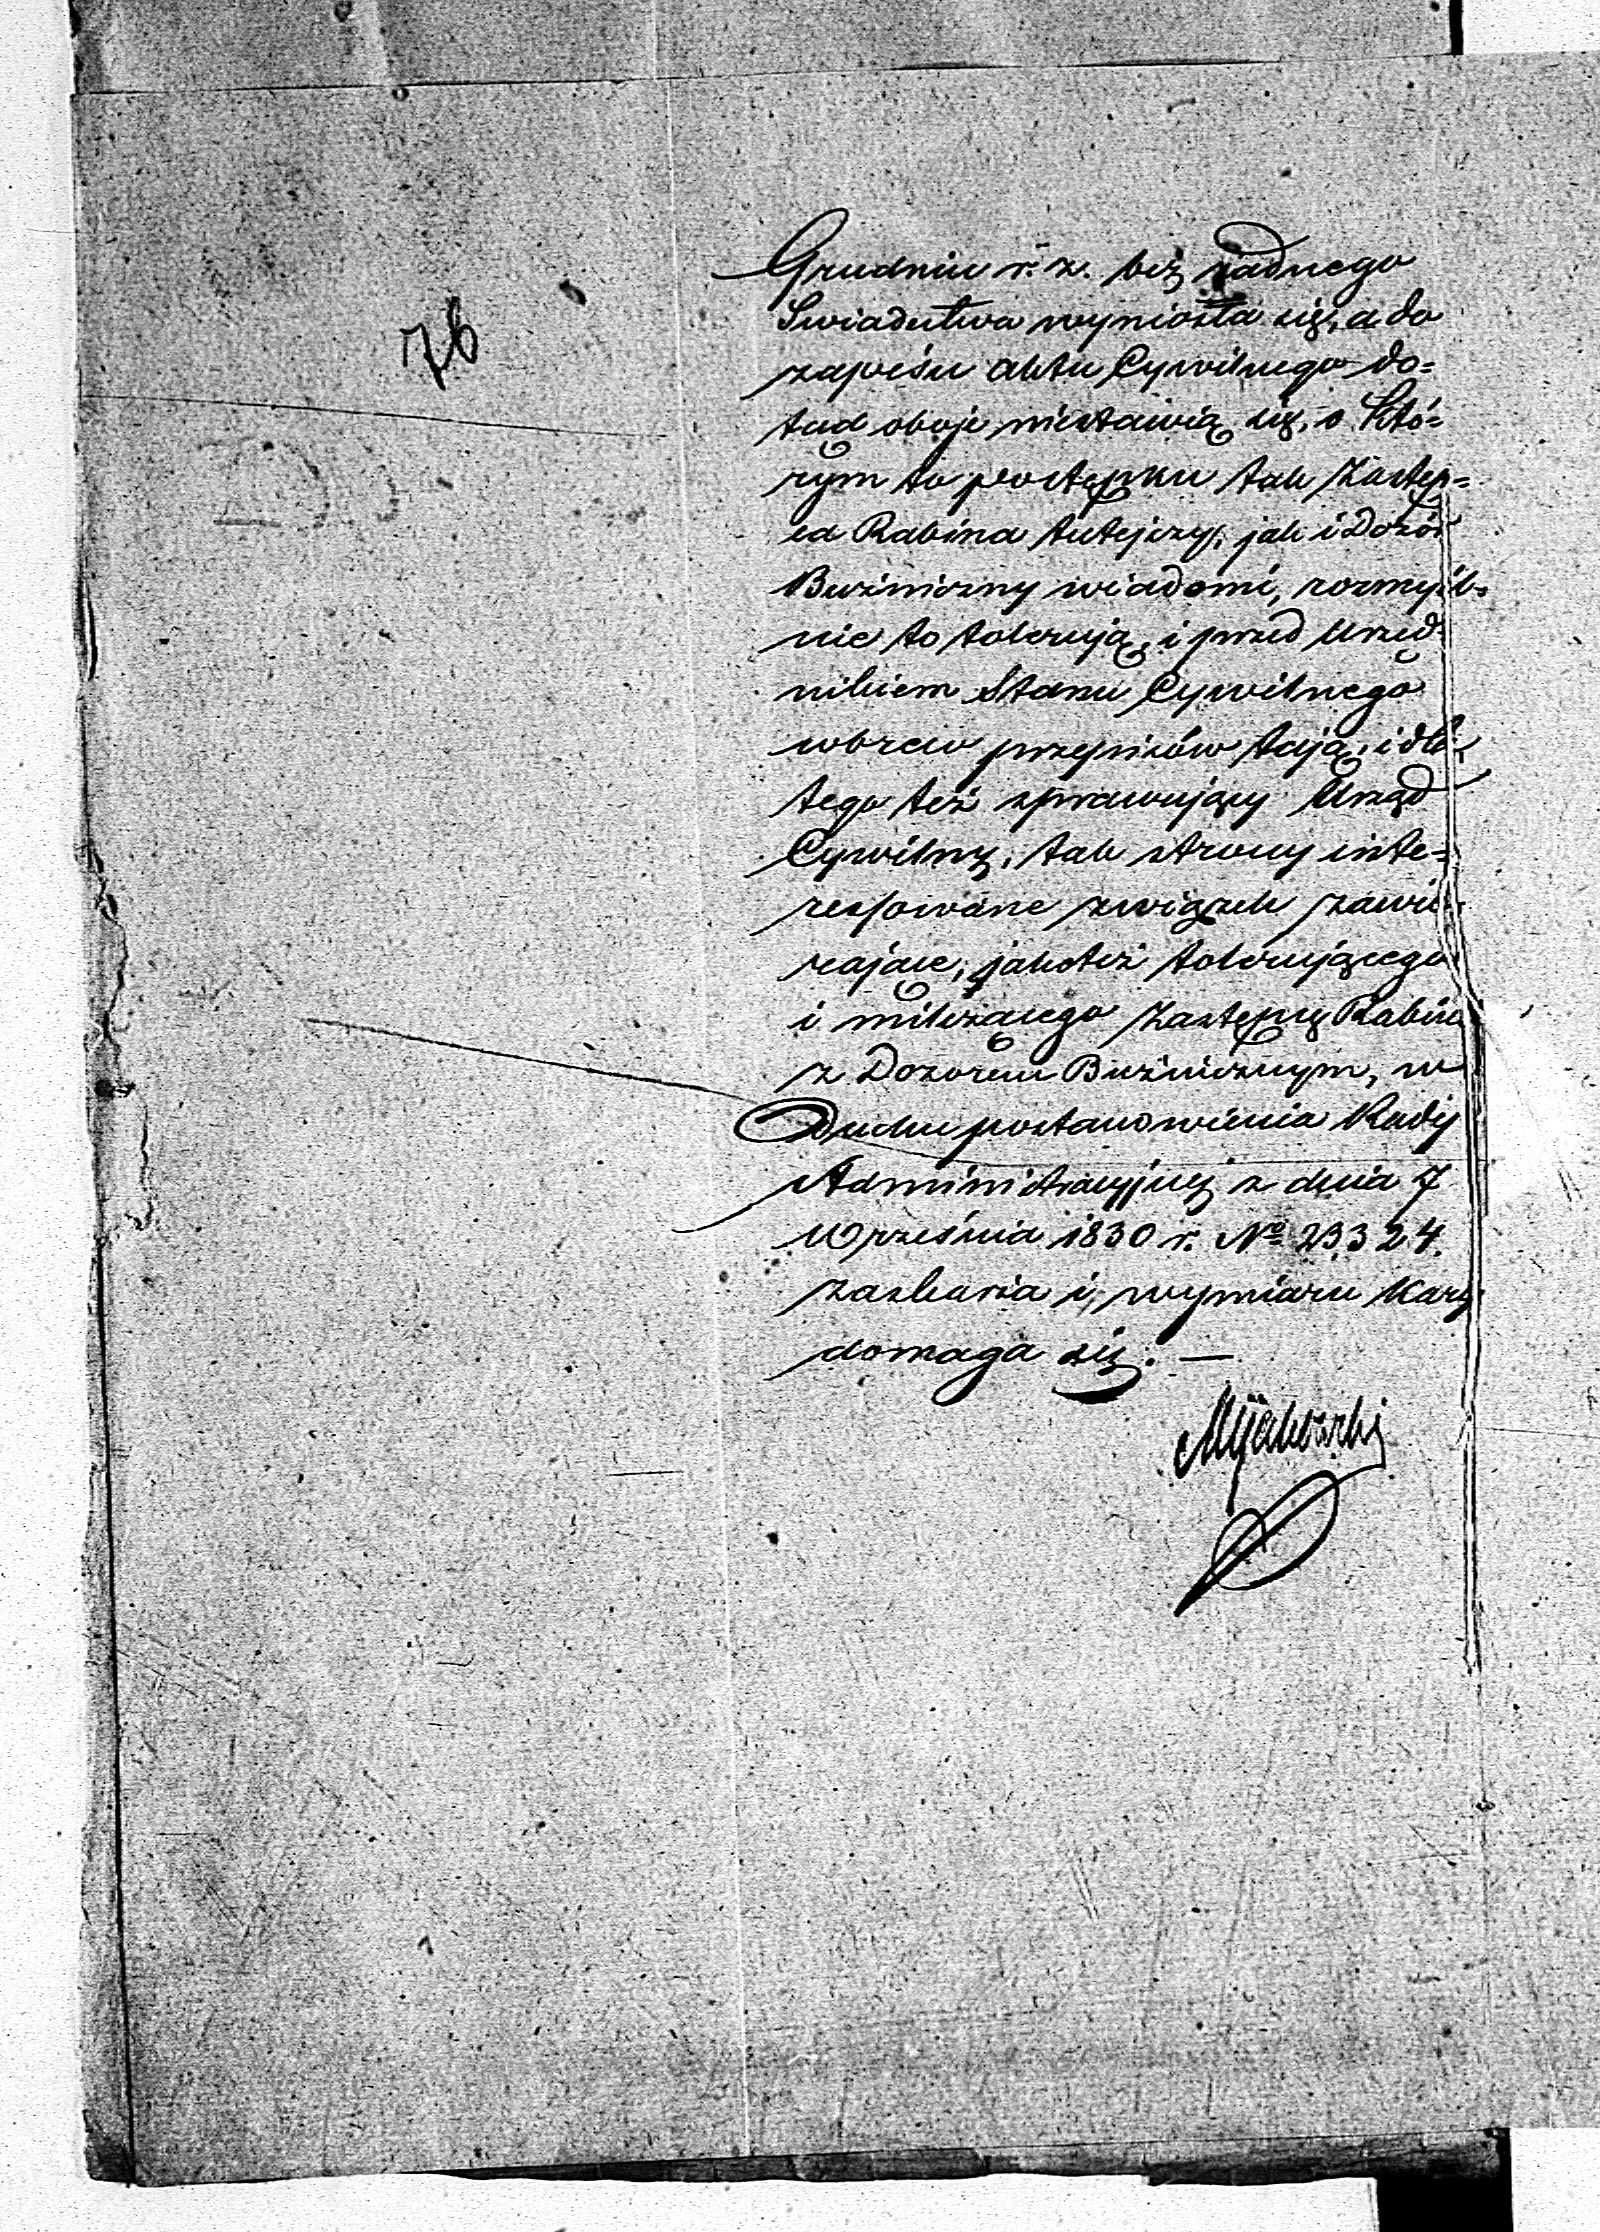 76
Grudniu r. z. bez żadnego
Swiadectwa wyniosła się, a do
zapisu aktu Cywilnego do=
tad oboje niestawią się, o któ=
rym to postępku tak Zastęp=
ca Rabina tutejszy, jak i Dozór
Bużniczny wiadomi, rozmyśl=
nie to tolerują, i przed Urzęd=
nikiem Stanu Cywilnego
wbrew przepisów tają, i dla
tego też sprawujący Urząd
Cywilny, tak strony inte=
ressowane związek zawie=
rające, jakoteż tolerującego
i milczącego Zastępcę Rabina
z Dozorem Bużnicznym, w
Duchu postanowienia Rady
Administracyjnej z dnia 7
Września 1830 r. No 23.324.
zaskarza i wymiaru Kary
domaga się. —